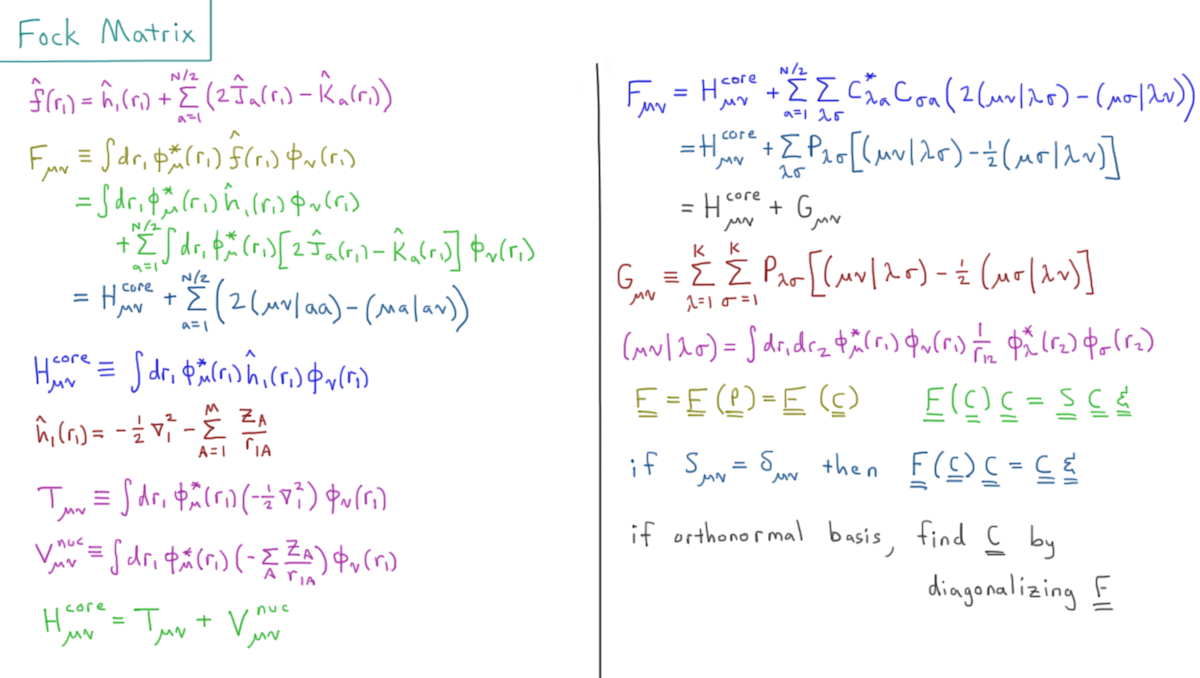 Fock Matrix
f̂(r₁) = ĥ₁(r₁) + Σ_{a=1}^{N/2} (2Ĵₐ(r₁) − K̂ₐ(r₁))
F_μν ≡ ∫dr₁ ϕ*_μ(r₁) f̂(r₁) ϕ_ν(r₁)
= ∫dr₁ ϕ*_μ(r₁) ĥ₁(r₁) ϕ_ν(r₁)
+ Σ_{a=1}^{N/2} ∫dr₁ ϕ*_μ(r₁) [2Ĵₐ(r₁) − K̂ₐ(r₁)] ϕ_ν(r₁)
= H_μν^core + Σ_{a=1}^{N/2} (2(μν|aa) − (μa|aν))
H_μν^core ≡ ∫dr₁ ϕ*_μ(r₁) ĥ₁(r₁) ϕ_ν(r₁)
ĥ₁(r₁) = −½ ∇₁² − Σ_{A=1}^{M} Z_A / r_{1A}
T_μν ≡ ∫dr₁ ϕ*_μ(r₁) (−½ ∇₁²) ϕ_ν(r₁)
V_μν^nuc ≡ ∫dr₁ ϕ*_μ(r₁) (−Σ_A Z_A / r_{1A}) ϕ_ν(r₁)
H_μν^core = T_μν + V_μν^nuc
F_μν = H_μν^core + Σ_{a=1}^{N/2} Σ_{λσ} C*_{λa} C_{σa} (2(μν|λσ) − (μσ|λν))
= H_μν^core + Σ_{λσ} P_λσ [(μν|λσ) − ½(μσ|λν)]
= H_μν^core + G_μν
G_μν ≡ Σ_{λ=1}^{K} Σ_{σ=1}^{K} P_λσ [(μν|λσ) − ½ (μσ|λν)]
(μν|λσ) = ∫dr₁dr₂ ϕ*_μ(r₁) ϕ_ν(r₁) 1/r₁₂ ϕ*_λ(r₂) ϕ_σ(r₂)
F = F(P) = F(C) F(C) C = S C ε
if S_μν = δ_μν then F(C) C = C ε
if orthonormal basis, find C by
diagonalizing F